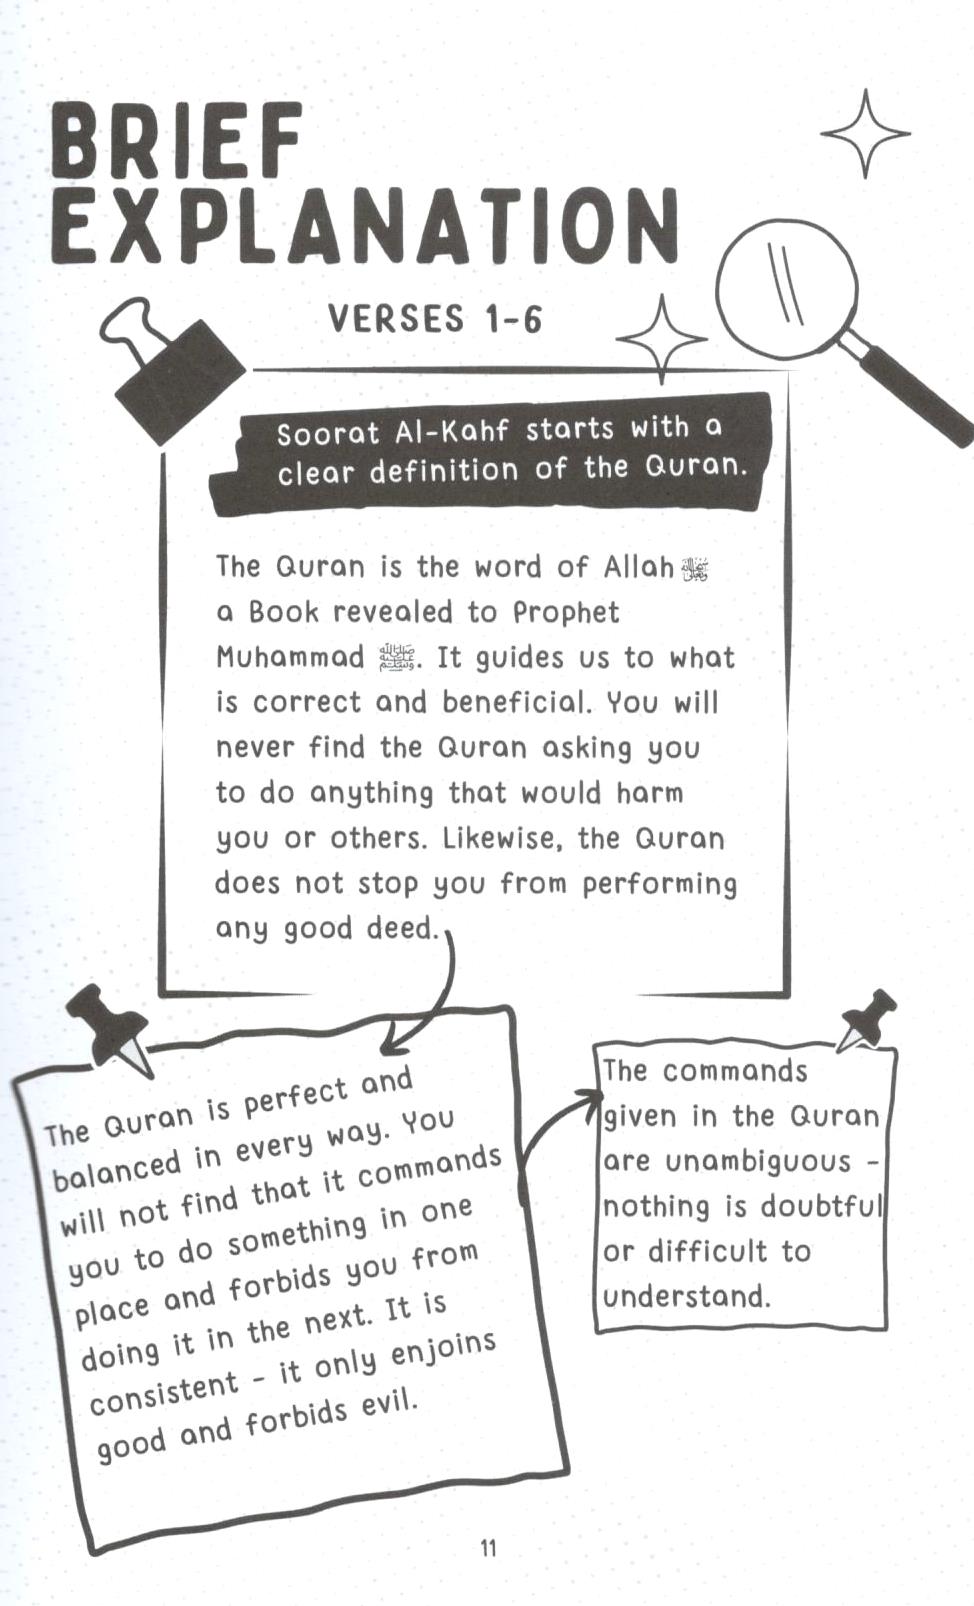 BRIEF
EXPLANATION
VERSES 1-6
Soorat Al-Kahf starts with a
clear definition of the Quran.
The Quran is the word of Allah ﷾
a Book revealed to Prophet
Muhammad ﷺ. It guides us to what
is correct and beneficial. You will
never find the Quran asking you
to do anything that would harm
you or others. Likewise, the Quran
does not stop you from performing
any good deed.
The Quran is perfect and
balanced in every way. You
will not find that it commands
you to do something in one
place and forbids you from
doing it in the next. It is
consistent - it only enjoins
good and forbids evil.
The commands
given in the Quran
are unambiguous -
nothing is doubtful
or difficult to
understand.
11